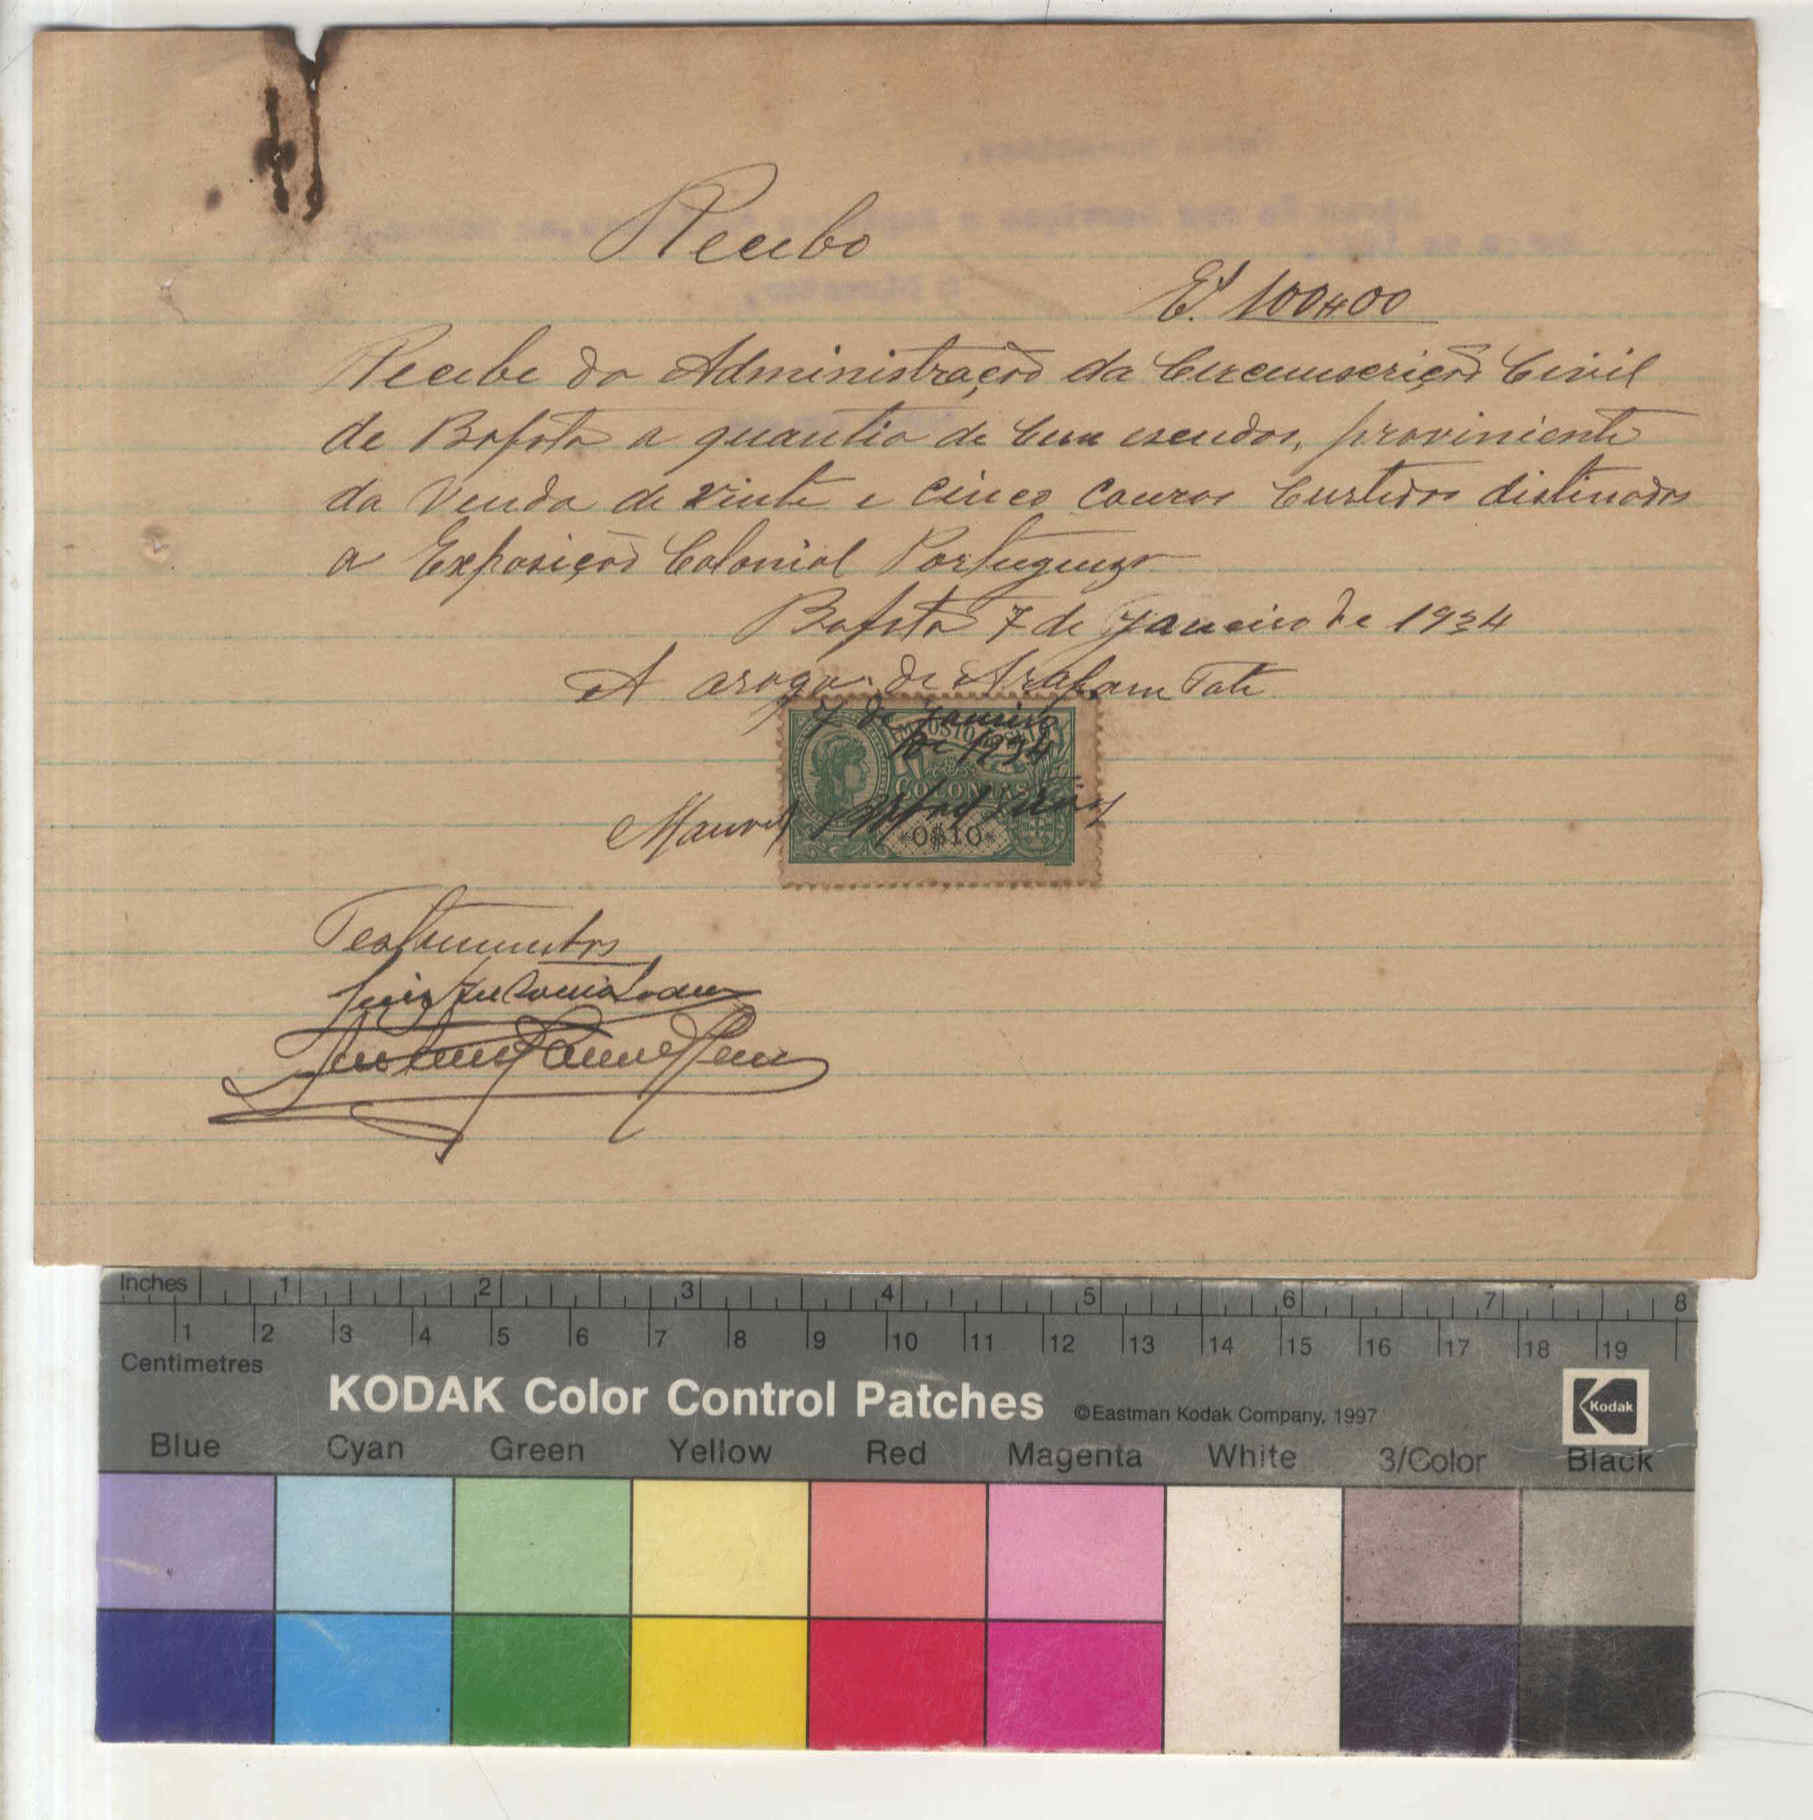 Recibo
Es. 100$00
Recebi da Administração da Circunscrição Civil
de Bafatá a quantia de Cem escudos, proviniente
da Venda de vinte e cinco couros Curtidos distinados
a Exposição Colonial Portugueza
Bafatá 7 de Janeiro de 1934
A arogo de Arafam Tate
7 de Janeiro
de 1934
COLONIAS
Manuel
0$10
Testemunhas
Luis Antonio
Inches 1 2 3 4 5 6 7 8
1 2 3 4 5 6 7 8 9 10 11 12 13 14 15 16 17 18 19
Centimetres
KODAK Color Control Patches ©Eastman Kodak Company, 1997 Kodak
Blue Cyan Green Yellow Red Magenta White 3/Color Black